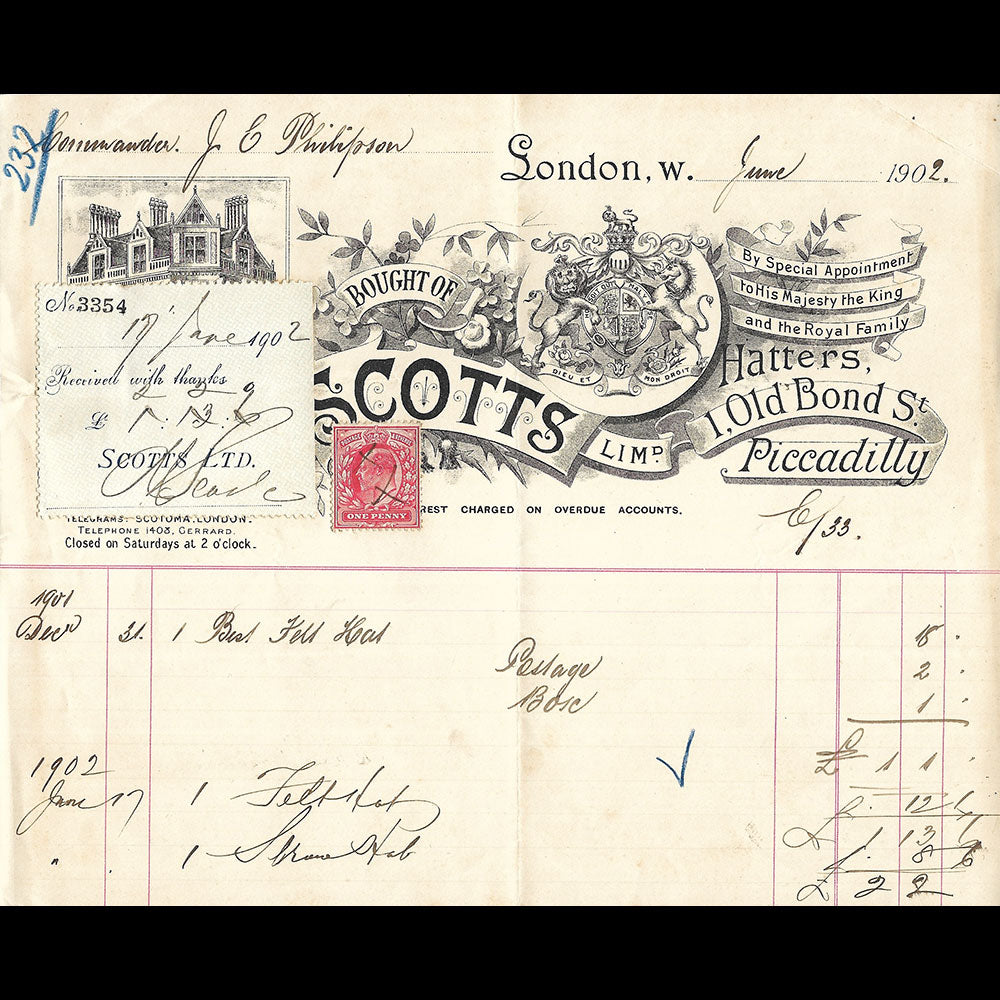 232
Commander. J E Philipson
London, W. June 1902.
BOUGHT OF
SCOTTS
LIMD.
DIEU ET MON DROIT
By Special Appointment
to His Majesty the King
and the Royal Family
Hatters,
1, Old Bond St.
Piccadilly
No. 3354
17 June 1902
Received with thanks
£ 1 : 13 .
SCOTTS LTD.
ONE PENNY
TELEGRAMS: SCOTOMA, LONDON.
TELEPHONE 1403, GERRARD.
Closed on Saturdays at 2 o'clock.
REST CHARGED ON OVERDUE ACCOUNTS.
E/33.
1901
Decr 31. 1 Best Felt Hat 18 .
Postage 2 .
Box 1 .
£ 1 1 .
1902
June 17 1 Felt Hat 12 6
1 13 6
" 1 Straw Hat 8 6
£ 2 2